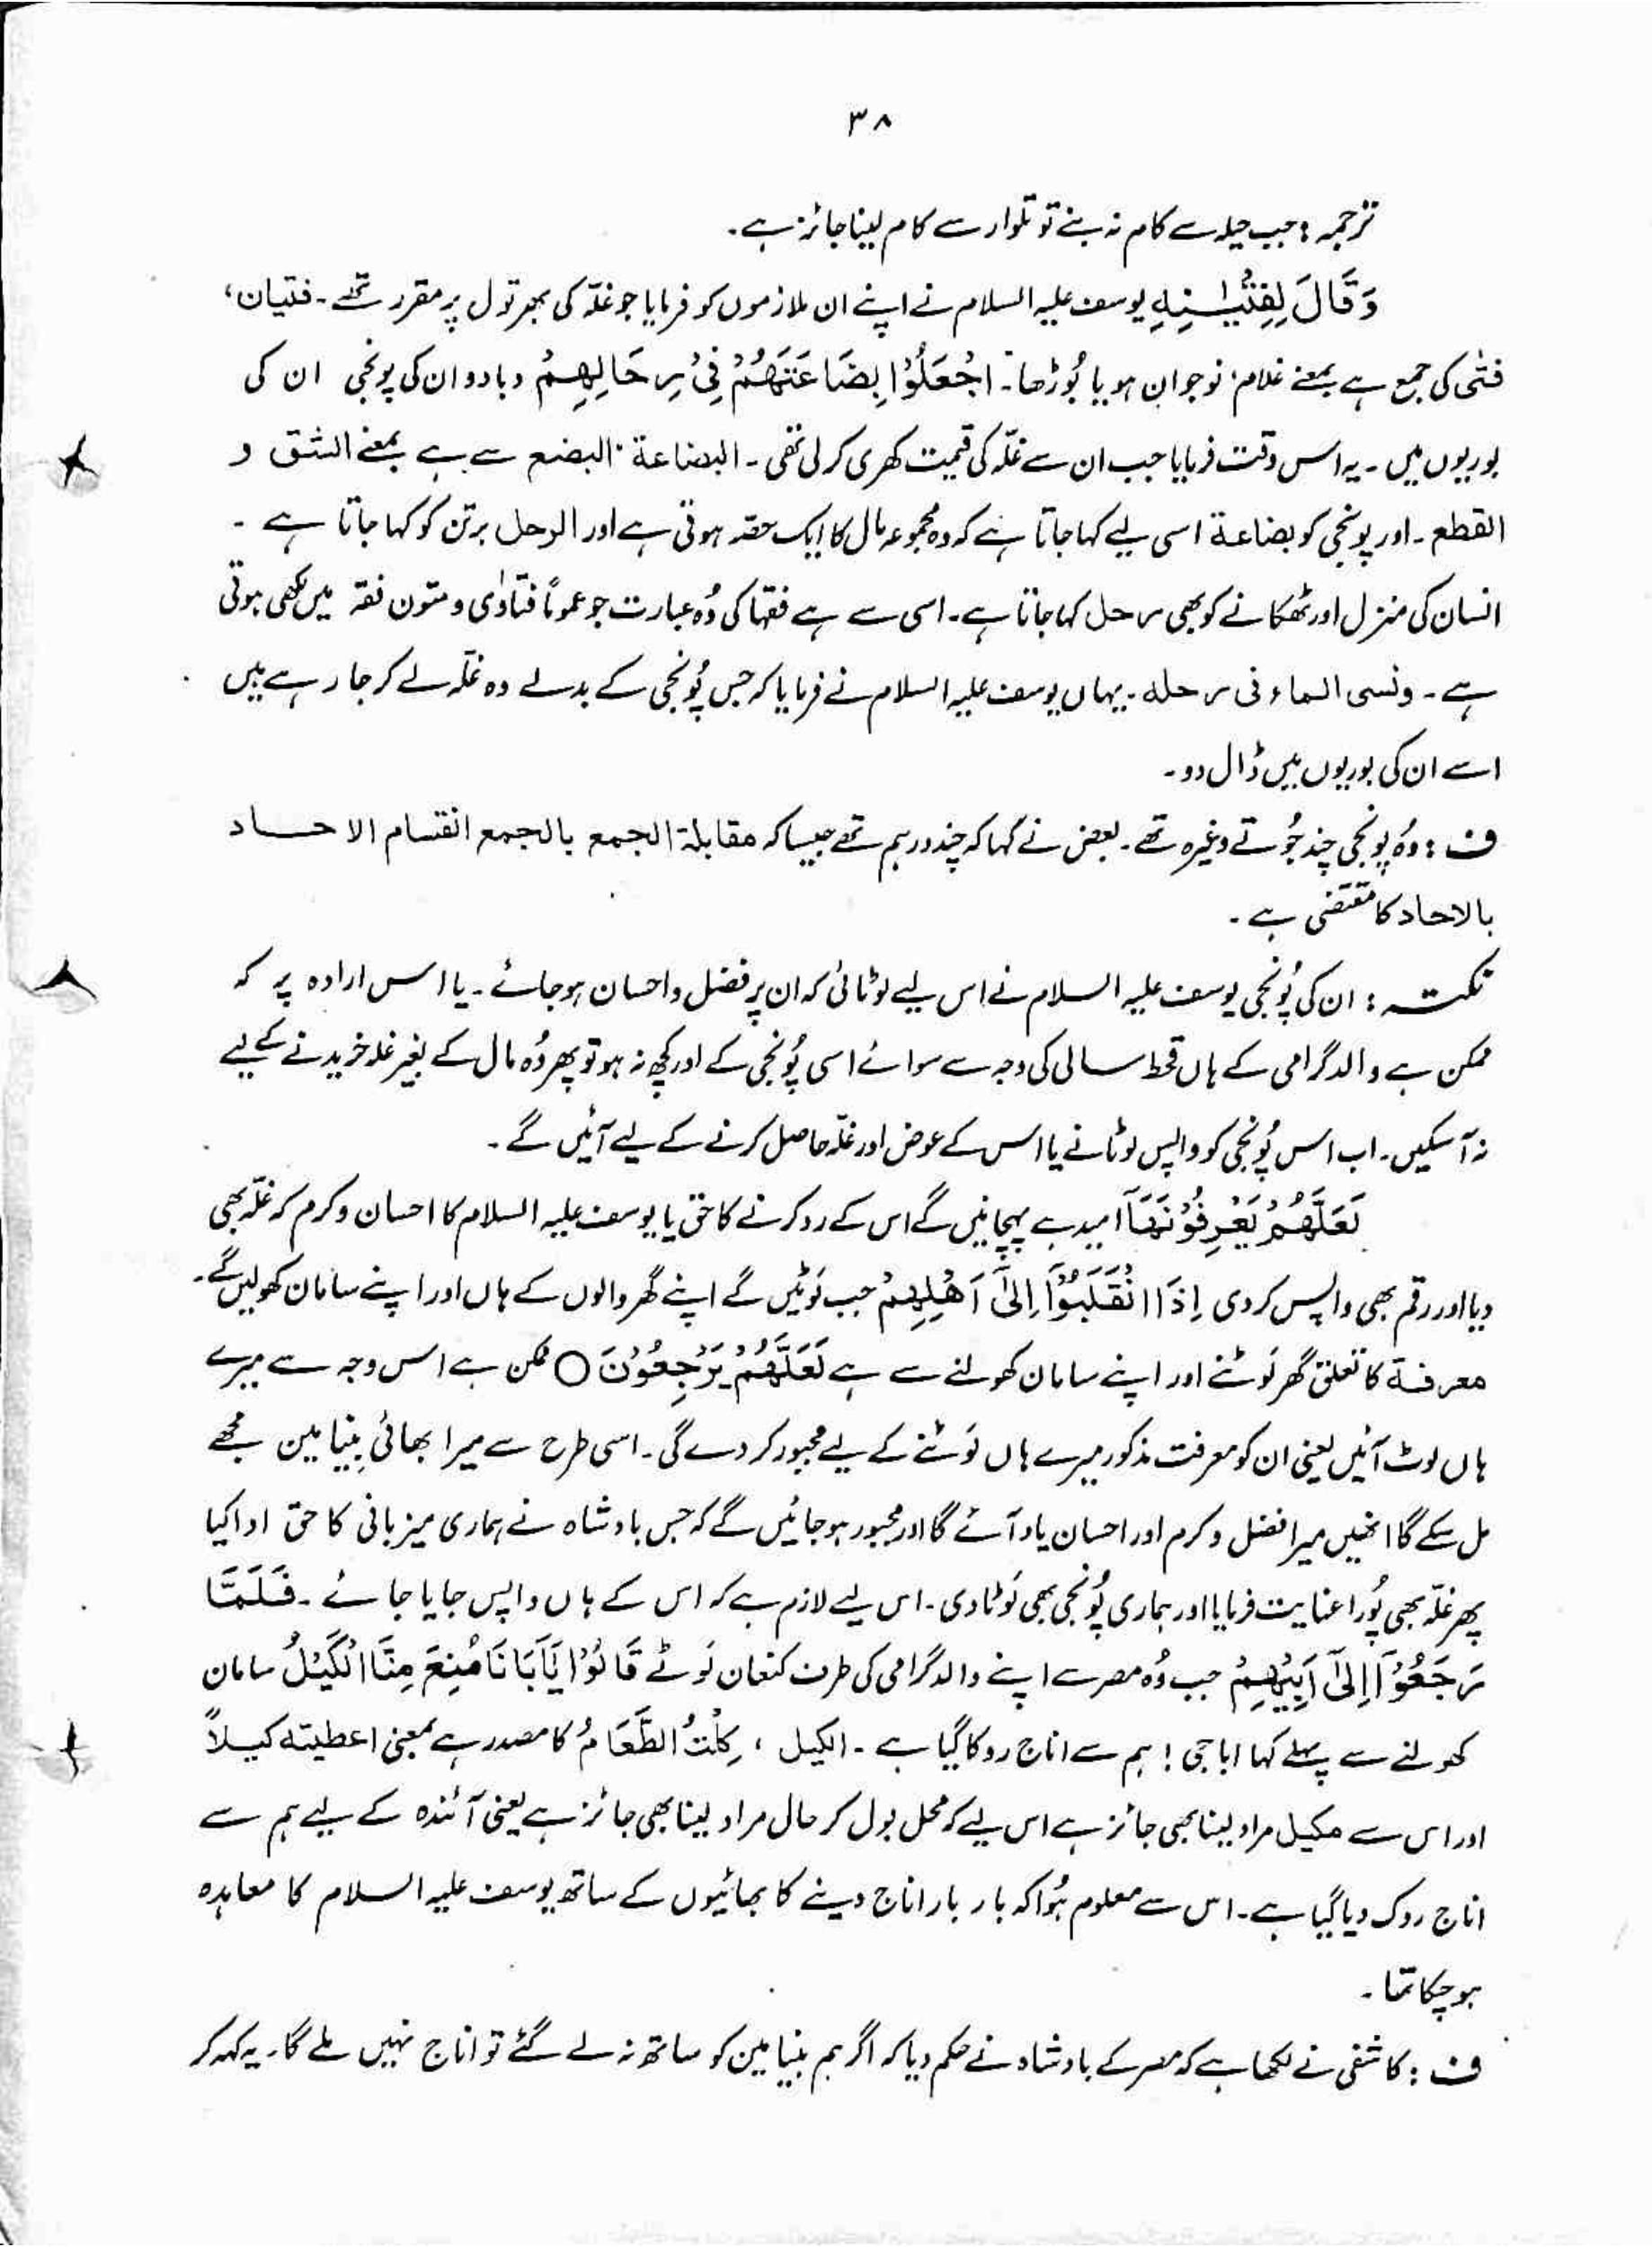 ۳۸
ترجمہ : جب حیلہ سے کام نہ بنے تو تلوار سے کام لینا جائز ہے۔
وَقَالَ لِفِتْيٰنِهِ یوسف علیہ السلام نے اپنے ان ملازموں کو فرمایا جو غلّہ کی بھر تول پر مقرر تھے۔ فتیان،
فتٰی کی جمع ہے بمعنے غلام، نوجوان ہو یا بُوڑھا۔ اجْعَلُوْا بِضَاعَتَهُمْ فِیْ رِحَالِهِمْ دبا دو ان کی پونجی ان کی
بوریوں میں۔ یہ اس وقت فرمایا جب ان سے غلّہ کی قیمت کھری کر لی تھی۔ البضاعة البضع سے ہے بمعنے الشق و
القطع۔ اور پونجی کو بضاعة اسی لیے کہا جاتا ہے کہ وہ مجموعہ مال کا ایک حصّہ ہوتی ہے اور الرحل برتن کو کہا جاتا ہے۔
انسان کی منزل اور ٹھکانے کو بھی رحل کہا جاتا ہے۔ اسی سے ہے فقہا کی وُہ عبارت جو عموماً فتاوٰی و متون فقہ میں لکھی ہوتی
ہے۔ ونسی الماء فی رحله۔ یہاں یوسف علیہ السلام نے فرمایا کہ جس پُونجی کے بدلے وہ غلّہ لے کر جا رہے ہیں
اسے ان کی بوریوں میں ڈال دو۔
ف : وُہ پونجی چند جُوتے وغیرہ تھے۔ بعض نے کہا کہ چند درہم تھے جیسا کہ مقابلة الجمع بالجمع انقسام الاحاد
بالاحاد کا مقتضی ہے۔
نکتہ : ان کی پُونجی یوسف علیہ السلام نے اس لیے لوٹائی کہ ان پر فضل و احسان ہو جائے۔ یا اس ارادہ پر کہ
ممکن ہے والد گرامی کے ہاں قحط سالی کی وجہ سے سوائے اسی پُونجی کے اور کچھ نہ ہو تو پھر وُہ مال کے بغیر غلہ خریدنے کے لیے
نہ آ سکیں۔ اب اس پُونجی کو واپس لوٹانے یا اس کے عوض اور غلّہ حاصل کرنے کے لیے آئیں گے۔
لَعَلَّهُمْ يَعْرِفُوْنَهَآ امید ہے پہچانیں گے اس کے رد کرنے کا حق یا یوسف علیہ السلام کا احسان و کرم کہ غلّہ بھی
دیا اور رقم بھی واپس کر دی اِذَا انْقَلَبُوْٓا اِلٰٓى اَهْلِهِمْ جب لَوٹیں گے اپنے گھر والوں کے ہاں اور اپنے سامان کھولیں گے۔
معرفة کا تعلق گھر لَوٹنے اور اپنے سامان کھولنے سے ہے لَعَلَّهُمْ يَرْجِعُوْنَ ○ ممکن ہے اس وجہ سے میرے
ہاں لوٹ آئیں یعنی ان کو معرفت مذکور میرے ہاں لَوٹنے کے لیے مجبور کر دے گی۔ اسی طرح سے میرا بھائی بِنیامین مجھے
مل سکے گا انھیں میرا فضل و کرم اور احسان یاد آئے گا اور مجبور ہو جائیں گے کہ جس بادشاہ نے ہماری میزبانی کا حق ادا کیا
پھر غلّہ بھی پُورا عنایت فرمایا اور ہماری پُونجی بھی لَوٹا دی۔ اس لیے لازم ہے کہ اس کے ہاں واپس جایا جائے۔ فَلَمَّا
رَجَعُوْٓا اِلٰٓى اَبِيْهِمْ جب وُہ مصر سے اپنے والد گرامی کی طرف کنعان لَوٹے قَالُوْا يٰٓاَبَانَا مُنِعَ مِنَّا الْكَيْلُ سامان
کھولنے سے پہلے کہا ابا جی! ہم سے اناج روکا گیا ہے۔ الکیل، کِلْتُ الطَّعَامُ کا مصدر ہے بمعنی اعطیته کیلاً
اور اس سے مکیل مراد لینا بھی جائز ہے اس لیے کہ محل بول کر حال مراد لینا بھی جائز ہے یعنی آئندہ کے لیے ہم سے
اناج روک دیا گیا ہے۔ اس سے معلوم ہُوا کہ بار بار اناج دینے کا بھائیوں کے ساتھ یوسف علیہ السلام کا معاہدہ
ہو چکا تھا۔
ف : کاشفی نے لکھا ہے کہ مصر کے بادشاہ نے حکم دیا کہ اگر ہم بنیامین کو ساتھ نہ لے گئے تو اناج نہیں ملے گا۔ یہ کہہ کر